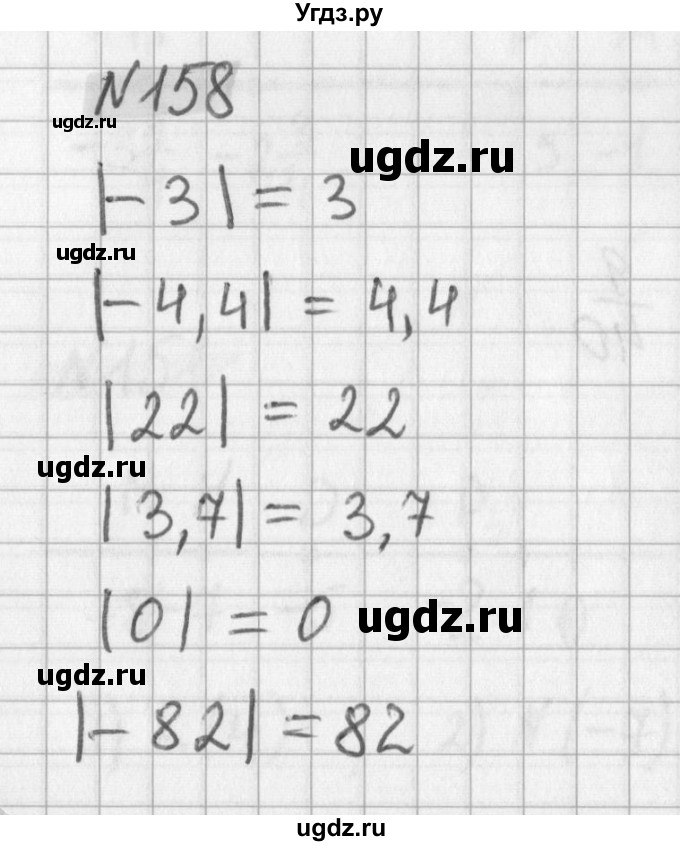 Угдз.ру
N158
ugdz.ru
ugdz.ru
|-3| = 3
ugdz.ru
|-4,4| = 4,4
|22| = 22
ugdz.ru
|3,7| = 3,7
|0| = 0
ugdz.ru
ugdz.ru
|-82| = 82
ugdz.ru